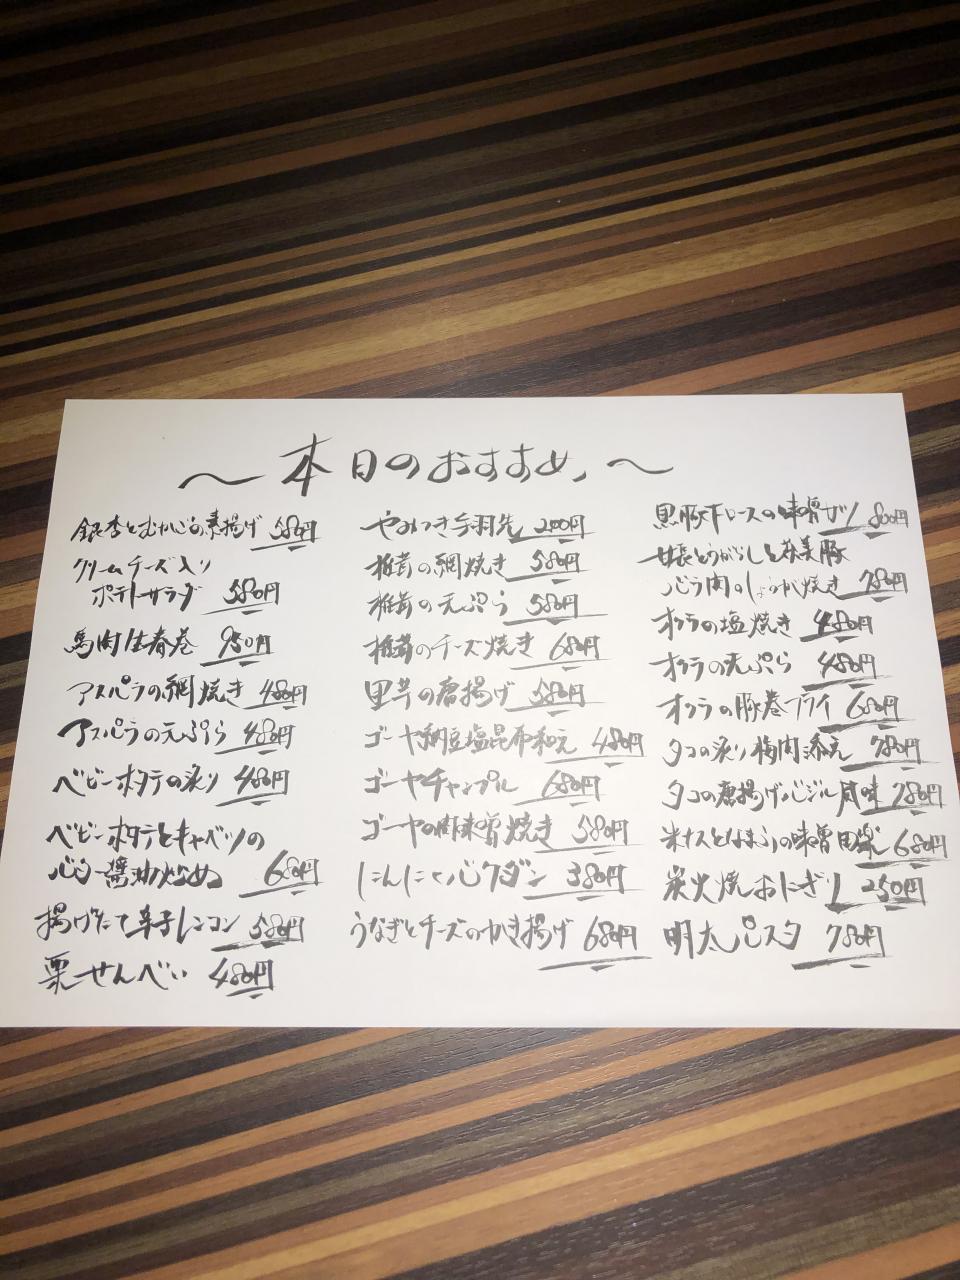 ～本日のおすすめ～
銀杏とむかごの素揚げ 580円
クリームチーズ入り
ポテトサラダ 580円
馬肉生春巻 980円
アスパラの網焼き 480円
アスパラの天ぷら 480円
ベビーホタテの炙り 480円
ベビーホタテとキャベツの
バター醤油炒め 680円
揚げたて辛子レンコン 580円
栗せんべい 480円
やみつき手羽先 200円
椎茸の網焼き 580円
椎茸の天ぷら 580円
椎茸のチーズ焼き 680円
里芋の唐揚げ 580円
ゴーヤ納豆塩昆布和え 480円
ゴーヤチャンプル 680円
ゴーヤの肉味噌焼き 580円
にんにくバクダン 380円
うなぎとチーズのかき揚げ 680円
黒豚下ロースの味噌カツ 800円
甘長とうがらしと茶美豚
バラ肉のしょうが焼き 780円
オクラの塩焼き 480円
オクラの天ぷら 480円
オクラの豚巻フライ 680円
タコの炙り梅肉添え 780円
タコの唐揚げバジル風味 780円
米ナスとなまふの味噌田楽 680円
炭火焼おにぎり 250円
明太パスタ 780円